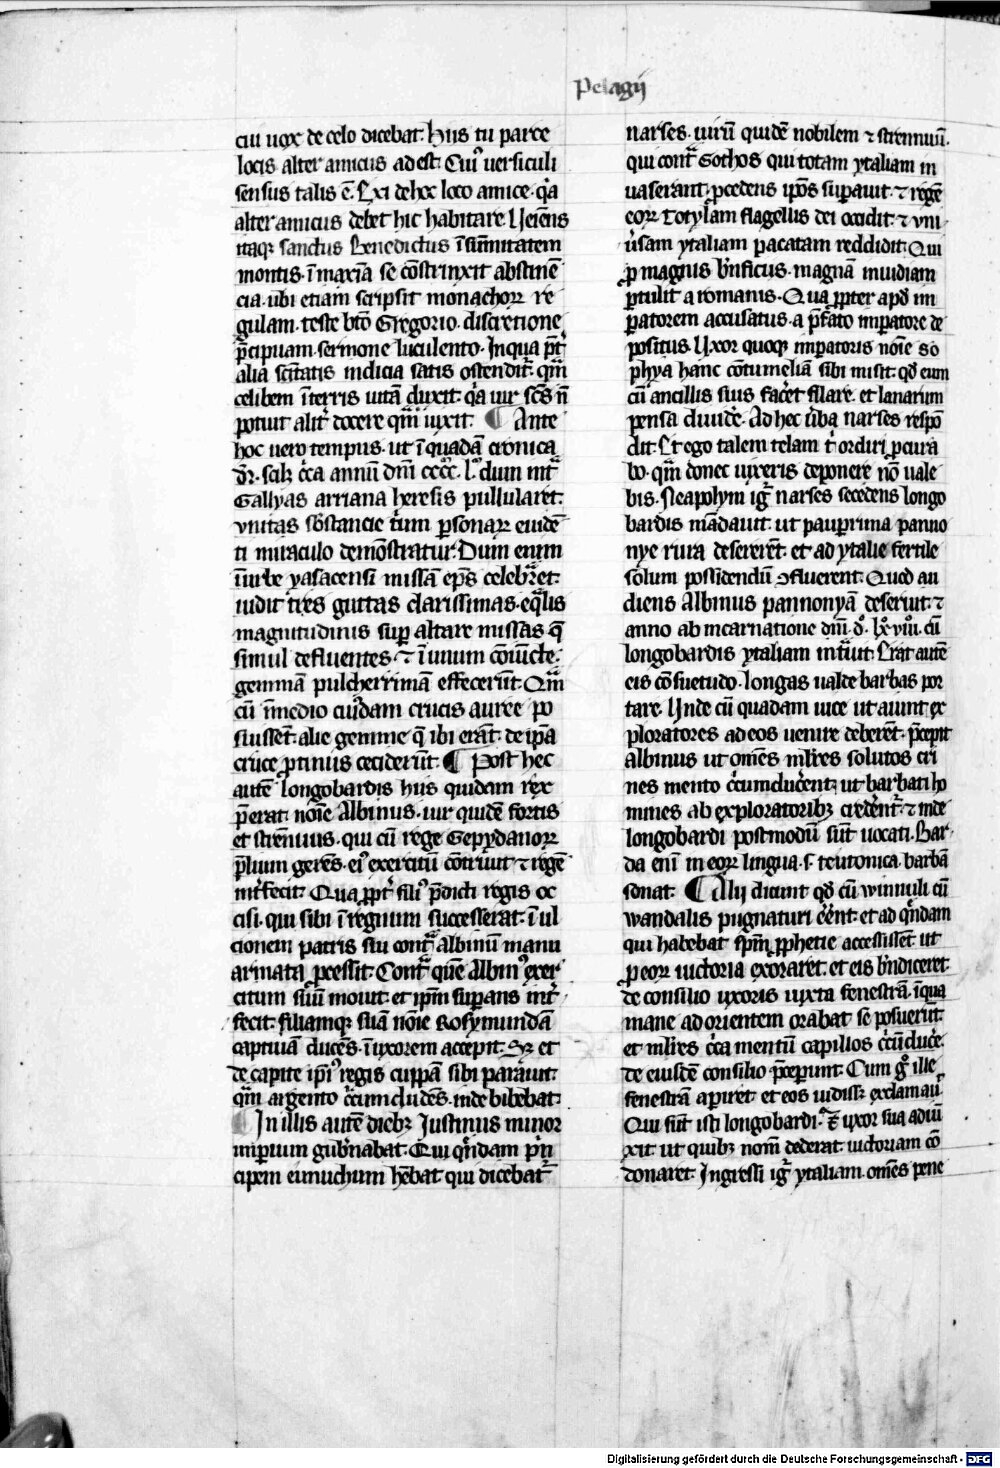 Pelagij
cui uox de celo dicebat. Hijs tu parce
locis alter amicus adest. Cuiꝰ uersiculi
sensus talis ē. Exi de hoc loco amice. qͣ
alter amicus debet hic habitare. Ueiens
itaqꝫ sanctus Benedictus ī sūmitatem
montis. ī maxīa se cōstrinxit abstinē
cia. ubi etiam scripsit monachoꝝ re
gulam. teste bt̄o Gregorio. discretione
p̄cipuam. sermone luculento. In qua p̄t̾
alia sc̄itatis indicia satis ostendit̾. qm̄
celibem ī terris uitā duxit. qͣ uir sc̄s n̄
potuit alit̾ docere qm̄ uixit. ¶ Ante
hoc uero tempus. ut ī quadā cronica
dr̄. scilꝫ c̾ca annū dn̄i cccc. l. dum int̾
Gallyas arriana heresis pullularet.
vnitas sb̄stancie t̾um ꝑsonaꝝ euidē
ti miraculo demōstratur. Dum enim
ī urbe yasacensi missā ep̄s celebraret.
uidit tres guttas clarissimas. eq̄lis
magnitudinis suꝑ altare missas q̄
simul defluentes. ⁊ ī unum cōiūcte.
gemmā pulcherrimā effecerūt. Qm̄
cū ī medio cui̾dam crucis auree po
suissēt. alie gemme q̄ ibi erāt. de ip̄a
cruce ꝓtinus ceciderūt. ¶ Post hec
autē longobardis hijs quidam rex
p̄erat. noīe Albinus. uir quidē fortis
et strēnuus. qui cū rege Gepydanoꝝ
p̄lium gerēs. eiꝰ exercitū cōtriuit ⁊ regē
int̾fecit. Qua ꝓpt̾ filiꝰ p̄dicti regis oc
cisi. qui sibi ī regnum successerat. ī ul
cionem patris sui contͣ albinū manu
armata ꝓcessit. Contͣ quē Albinꝰ exer
citum suū mouit. et ip̄m suꝑans int̾
fecit. filiamqꝫ suā noīe Rosymundā
captiuā ducēs. ī uxorem accepit. Sꝫ et
de capite ip̄iꝰ regis cuppā sibi parauit.
qm̄ argento c̾cumcludēs. inde bibebat.
¶ In illis autē diebꝫ Justinus minor
imperium gub̾nabat. Qui q̄ndam p̾n
cipem eunuchum hēbat qui dicebat̾
narses. uirū quidē nobilem ⁊ strennuū.
qui contͣ Gothos qui totam ytaliam in
uaserant. ꝓcedens ip̄os suꝑauit. ⁊ regē
eoꝝ Totylam flagellis dei occidit. ⁊ vni
u̾sam ytaliam pacatam reddidit. Qui
ꝓ magnis bn̄ficijs. magnā inuidiam
ꝑtulit a romanis. Qua ꝓpter apd̾ im
ꝑatorem accusatus. a p̄fato imperatore de
positus. Uxor quoqꝫ imperatoris noīe so
phya hanc cōtumeliā sibi misit. qd̾ eum
cū ancillis suis fac̾et filare. et lanarum
pensa diuid̾e. Ad hec ūba narses respō
dit. Et ego talem telam t̾ ordiri ꝓcura
bo. qm̄ donec uixeris deponere nō uale
bis. Neapolym ig̾ narses secedens longo
bardis mādauit. ut pauꝑrima panno
nye rura deserēt. et ad ytalie fertile
solum possidendū ꝯfluerent. Quod au
diens Albinus pannonyā deseruit. ⁊
anno ab incarnatione dn̄i. dͦ. lxͦ. viijͦ. cū
longobardis ytaliam int̾uit. Erat autē
eis cōsuetudo. longas ualde barbas por
tare. Unde cū quadam uice ut aiunt ex
ploratores ad eos uenire deberēt. p̄cepit
Albinus ut om̄es ml̾res solutos cri
nes mento c̾cumduc̾ent. ut barbati ho
mines ab exploratoribꝫ cred̾ent̾. ⁊ inde
longobardi postmodū sūt uocati. Bar
da enī in eoꝝ lingua. s. teutonica. barbā
sonat. ¶ Alij dicunt qd̾ cū winnuli cū
wandalis pugnaturi eēnt. et ad q̄ndam
qui habebat sp̄m ꝓphetie accessissēt. ut
ꝓ eoꝝ uictoria exoraret. et eis bn̄diceret.
de consilio uxoris iuxta fenestrā. ī qua
mane ad orientem orabat se posuerūt.
et ml̾res c̾ca mentū capillos c̾cūduc̾e.
de eiusdē consilio p̄ceperunt. Cum gͦ ille
fenestrā aperiret. et eos uidissꝫ exclamauͥ.
Qui sūt isti longobardi. Et uxor sua adiū
xit. ut quibꝫ nom̄ dederat. uictoriam cō
donaret. Ingressi ig̾ ytaliam. om̄es pene
Digitalisierung gefördert durch die Deutsche Forschungsgemeinschaft - DFG